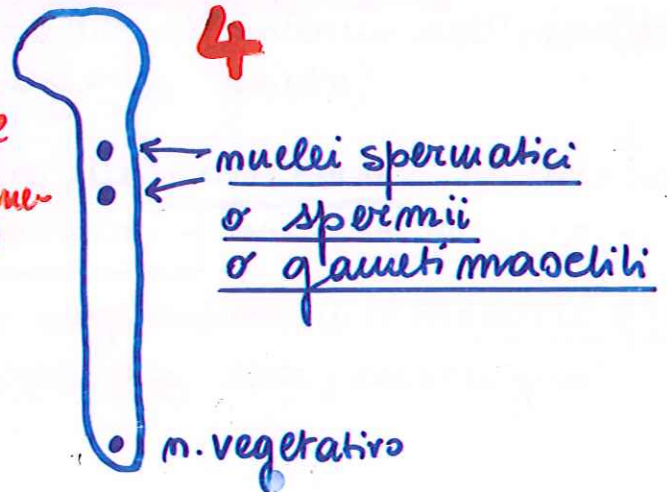 4
nuclei spermatici
o spermii
o gameti maschili
n. vegetativo